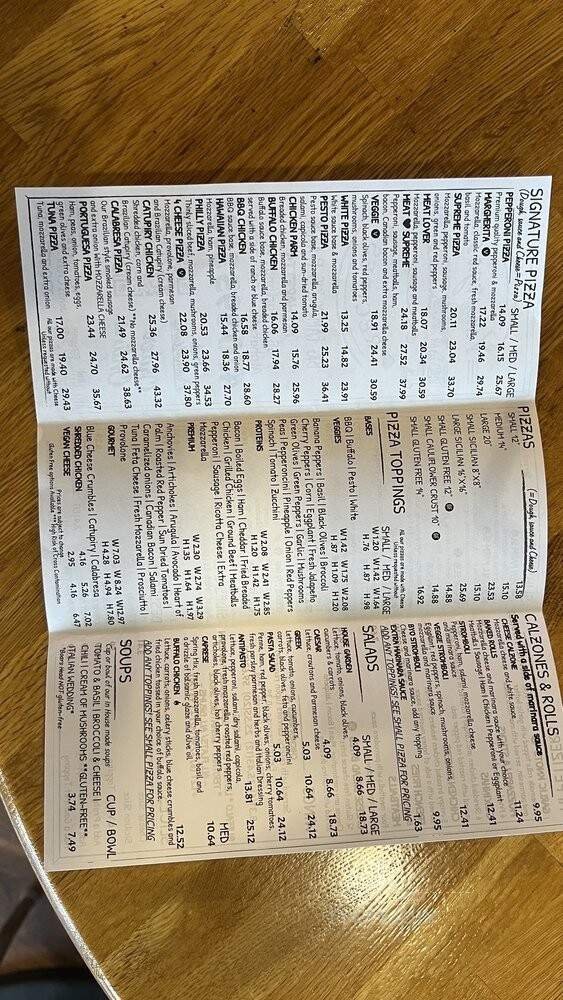 SIGNATURE PIZZA
(Dough, sauce and Cheese = Pizza) SMALL / MED / LARGE
PEPPERONI PIZZA 14.09 16.15 25.67
Premium quality pepperoni & mozzarella
MARGHERITA 17.22 19.46 29.74
Mozzarella, classic red sauce, fresh mozzarella,
basil and tomato
SUPREME PIZZA 20.11 23.04 33.70
Mozzarella, pepperoni, sausage, mushrooms,
onions, green peppers
MEAT LOVER 18.07 20.34 30.59
Mozzarella, pepperoni, sausage and meatballs
MEAT SUPREME 24.18 27.52 37.99
Pepperoni, sausage, meatballs, ham,
bacon, Canadian bacon and extra mozzarella cheese
VEGGIE 18.91 24.41 30.59
Spinach, black olives, red peppers,
mushrooms, onions and tomatoes
WHITE PIZZA 13.25 14.82 23.91
White sauce base & mozzarella
PESTO PIZZA 21.99 25.23 36.41
Pesto sauce base, mozzarella, arugula,
salami, capicola and sun-dried tomato
CHICKEN PARM 14.09 15.76 25.96
Breaded chicken, mozzarella and parmesan
BUFFALO CHICKEN 16.06 17.94 28.27
Buffalo sauce base, mozzarella, breaded chicken
served with a side of ranch or blue cheese
BBQ CHICKEN 16.58 18.77 28.60
BBQ sauce base, mozzarella, breaded chicken and onion
HAWAIIAN PIZZA 15.44 18.36 27.70
Mozzarella, ham, pineapple
PHILLY PIZZA 20.53 23.66 34.53
Thinly sliced beef, mozzarella, mushrooms, onions, green peppers
4 CHEESE PIZZA 22.08 23.90 37.80
Mozzarella, provolone, parmesan
and Brazilian Catupiry (cream cheese)
CATUPIRY CHICKEN 25.36 27.96 43.32
Shredded chicken, corn and
Brazilian Catupiry (cream cheese) **No mozzarella cheese**
CALABRESA PIZZA 21.49 24.62 38.63
Our Brazilian style smoked sausage
and extra onion with MOZZARELLA CHEESE
PORTUGUESA PIZZA 23.44 24.70 35.67
Ham, peas, onion, tomatoes, eggs,
green olives and extra cheese
TUNA PIZZA 17.00 19.40 29.43
Tuna, mozzarella and extra onion
ALL our pizzas are made with Cheese
Unless requested without
PIZZAS (= Dough, sauce and Cheese)
SMALL 12" 13.58
MEDIUM 14" 15.10
LARGE 20" 23.53
SMALL SICILIAN 8"X8" 15.10
LARGE SICILIAN 16"X16" 25.69
SMALL GLUTEN FREE 12" 14.88
SMALL CAULIFLOWER CRUST 10" 14.88
16.92
ALL our pizzas are made with Cheese
Unless requested without
PIZZA TOPPINGS
SMALL / MED / LARGE
BASES W 1.20 W 1.42 W 1.64
BBQ | Buffalo | Pesto | White H .76 H .87 H .98
VEGGIES W 1.42 W 1.75 W 2.08
H .87 H 1.09 H 1.20
Banana Peppers | Basil | Black Olives | Broccoli
Cherry Peppers | Corn | Eggplant | Fresh Jalapeño
Green Olives | Green Peppers | Garlic | Mushrooms
Peas | Pepperoncini | Pineapple | Onion | Red Peppers
Spinach | Tomato | Zucchini
PROTEINS W 2.08 W 2.41 W 2.85
H 1.20 H 1.42 H 1.75
Bacon | Boiled Eggs | Ham | Cheddar | Fried Breaded
Chicken | Grilled Chicken | Ground Beef | Meatballs
Pepperoni | Sausage | Ricotta Cheese | Extra
Mozzarella
PREMIUM W 2.30 W 2.74 W 3.29
H 1.35 H 1.64 H 1.97
Anchovies | Artichokes | Arugula | Avocado | Heart of
Palm | Roasted Red Pepper | Sun Dried Tomatoes |
Caramelized Onions | Canadian Bacon | Salami
Tuna | Feta Cheese | Fresh Mozzarella | Prosciutto |
Provolone
GOURMET W 7.03 W 8.24 W12.97
H 4.28 H 4.94 H 7.80
Blue Cheese Crumbles | Catupiry | Calabresa
SHREDDED CHICKEN 4.16 5.26 7.02
VEGAN CHEESE 2.95 4.16 6.47
Prices are subject to change
Gluten Free options Available *** High Risk of Cross Contamination
CALZONES & ROLLS
Served with a side of marinara sauce
CHEESE CALZONE 9.95
Mozzarella cheese, and white, sauce.
BAKED ROLLS 11.24
Mozzarella cheese and marinara sauce with your choice
Meatballs | Sausage | Ham | Chicken | Pepperoni or Eggplant
STROMBOLI 12.41
Pepperoni, ham, salami, mozzarella cheese
and marinara sauce
VEGGIE STROMBOLI 12.41
Eggplant, red peppers, spinach, mushrooms, onions,
mozzarella cheese and marinara sauce
BYO STROMBOLI 9.95
Cheese and marinara sauce, add any topping
EXTRA MARINARA SAUCE 1.63
ADD ANY TOPPINGS! SEE SMALL PIZZA FOR PRICING
SALADS
SMALL / MED / LARGE
HOUSE GARDEN 4.09 8.66 18.73
Lettuce, tomatoes, onions, black olives,
cucumbers & carrots
CAESAR 4.09 8.66 18.73
Lettuce, croutons and Parmesan cheese
GREEK 5.03 10.64 24.12
Lettuce, tomato, onions, cucumbers,
carrots, black olives, feta and pepperoncini
PASTA SALAD 5.03 10.64 24.12
Penne, ham, red pepper, black olives, onions, cherry tomatoes,
fresh parsley, parmesan and herbs and Italian dressing
ANTIPASTO 13.81 25.12
Lettuce, pepperoni, salami, dry salami, capicola,
provolone, fresh mozzarella, roasted red peppers,
artichokes, black olives, hot cherry peppers
MED
CAPRESE 10.64
Spring Mix, fresh mozzarella, tomatoes, basil, and
a drizzle of balsamic glaze and olive oil
BUFFALO CHICKEN 12.52
Lettuce, carrots, onions, celery sticks, blue cheese crumbles and
fried chicken tossed in your choice of buffalo sauce.
ADD ANY TOPPINGS! SEE SMALL PIZZA FOR PRICING
SOUPS
Cup or bowl of our in house made soups CUP / BOWL
TOMATO & BASIL | BROCCOLI & CHEESE |
CHILI | CREAM OF MUSHROOMS **GLUTEN-FREE**
ITALIAN WEDDING* 3.74 7.49
*Today Meat NOT gluten-free*